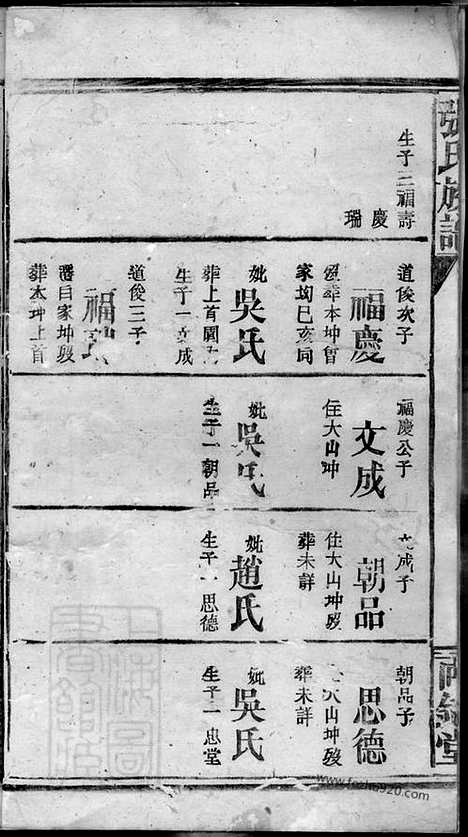 張氏族譜
生子三福壽
慶
瑞
道俊次子
福慶
葬本坤曾
家坳巳亥同
妣吳氏
葬上首圓
生子一文成
道俊三子
福瑞
潘目家坤歿
葬本坤上首
福慶公子
文成
住大山坤
妣吳氏
生子一朝品
文成子
朝品
住大山坤歿
葬未詳
妣趙氏
生子一思德
朝品子
思德
大山坤歿
葬未詳
妣吳氏
生子一忠堂
堂
上海圖書館藏
www.fozhu920.com